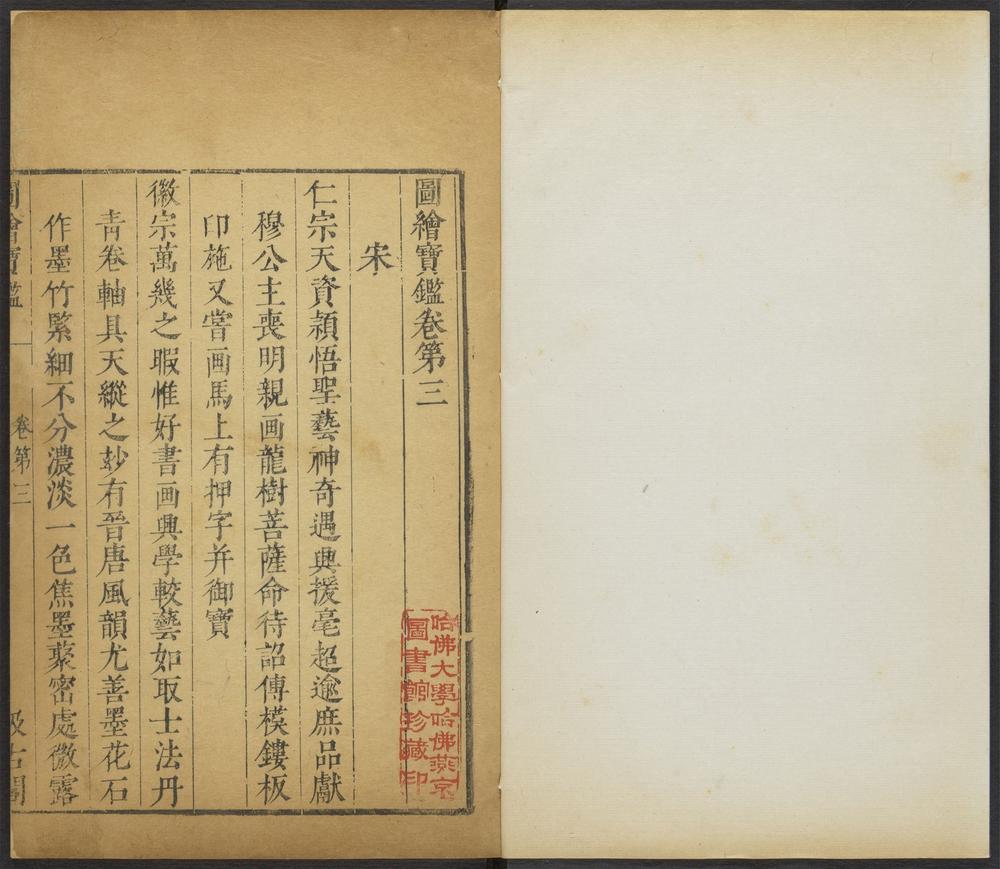 圖繪寶鑑卷第三
宋
仁宗天資穎悟聖藝神奇遇興援毫超逾庶品獻
穆公主喪明親画龍樹菩薩命待詔傳模鏤板
印施又嘗画馬上有押字并御寶
徽宗萬幾之暇惟好書画興學較藝如取士法丹
青卷軸具天縱之玅有晉唐風韻尤善墨花石
作墨竹緊細不分濃淡一色焦墨藂密處微露
圖繪寶鑑 卷第三 汲古閣
哈佛大學哈佛燕京
圖書館珍藏印